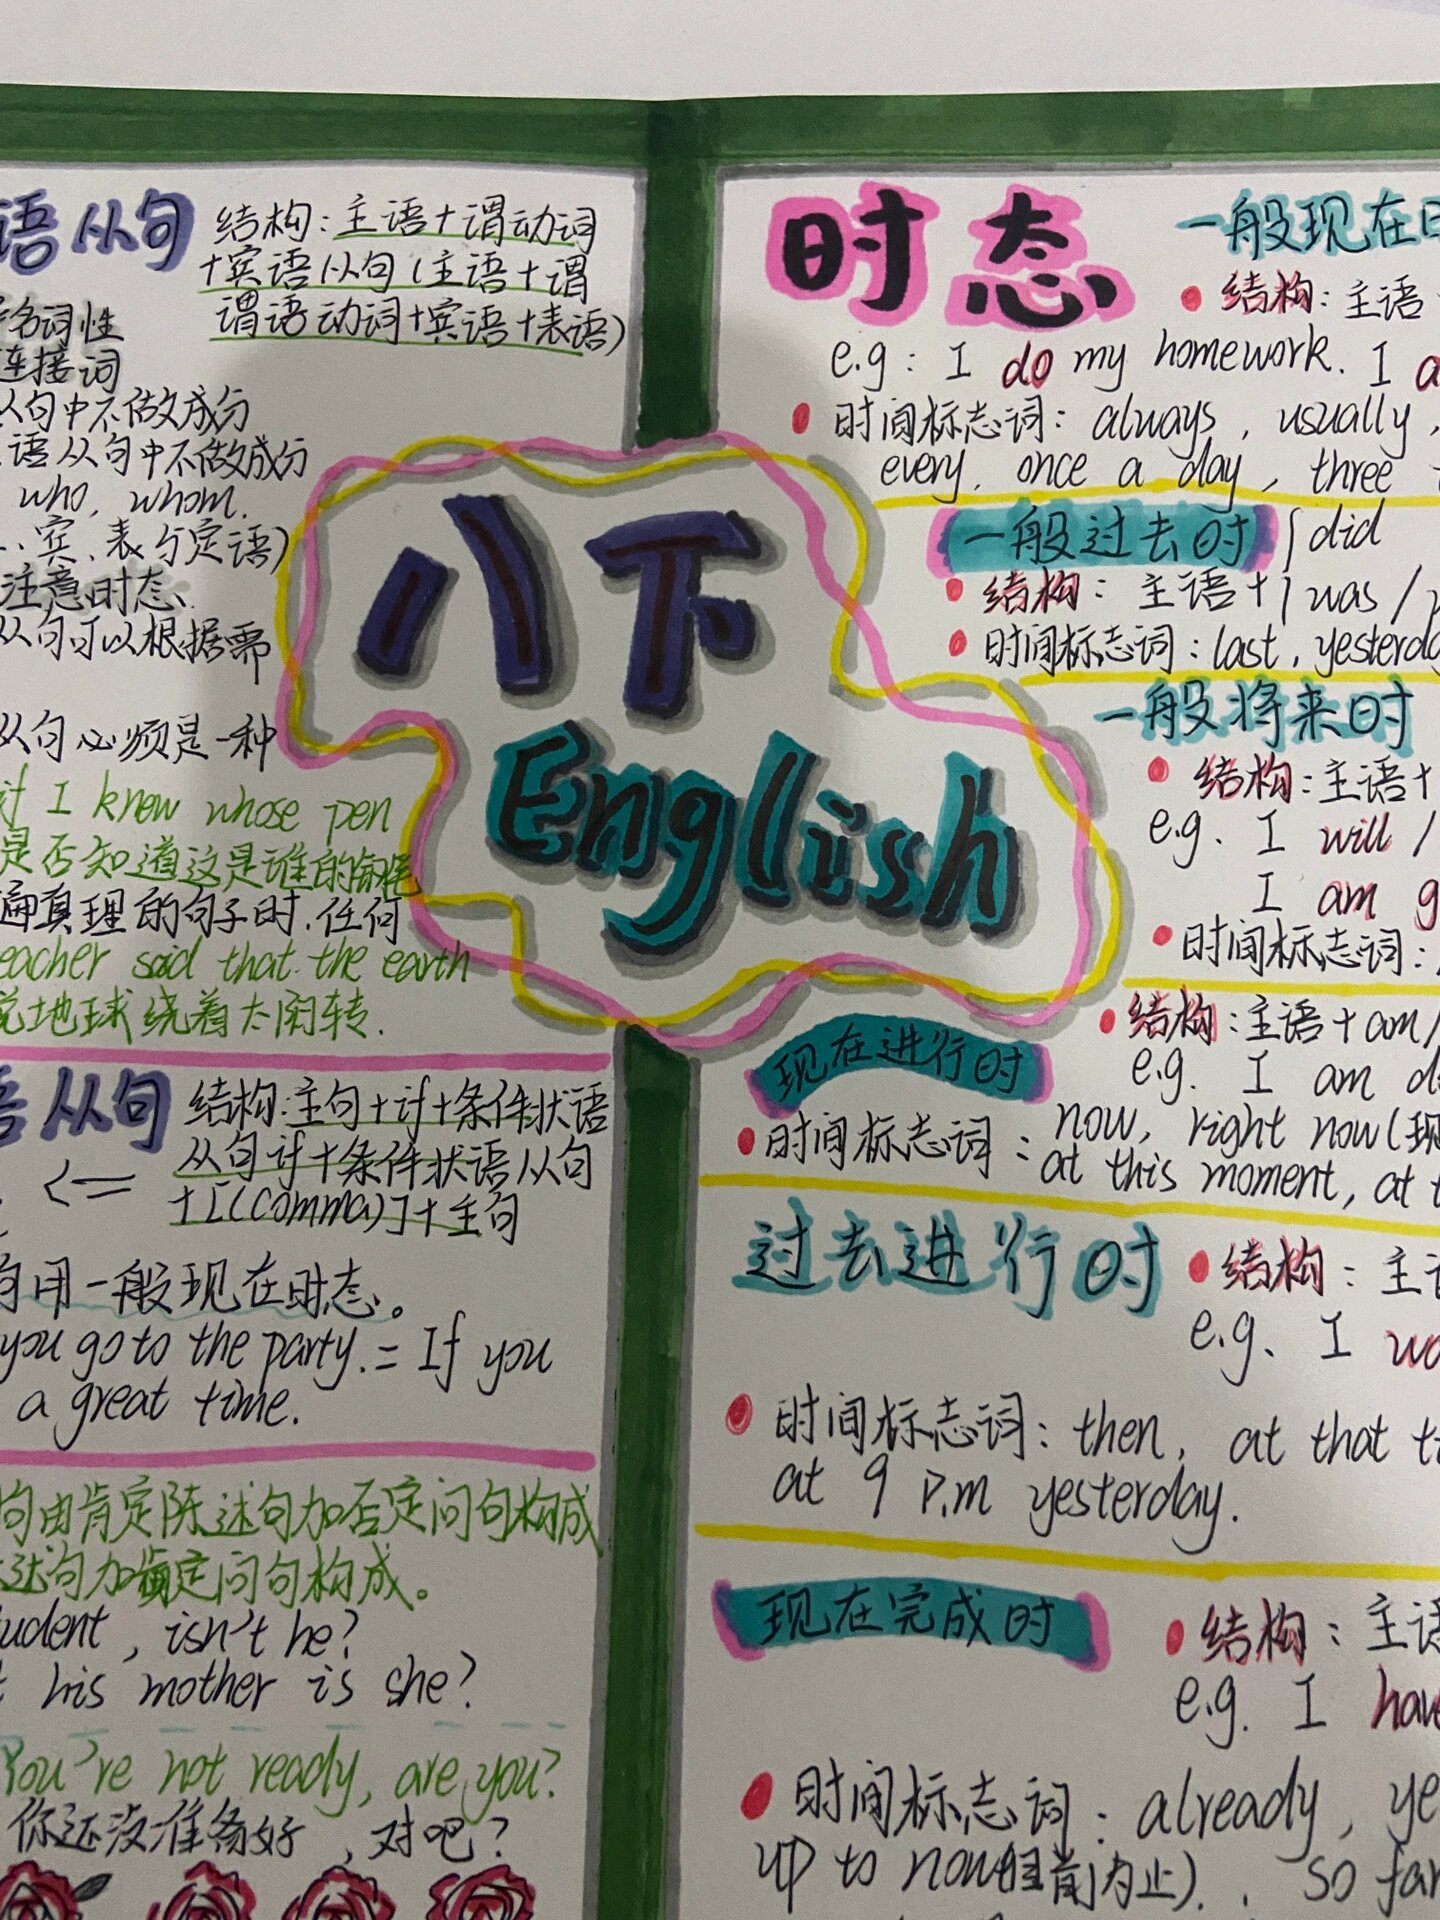 语从句 结构：主语+谓动词
+宾语从句（主语+谓
谓语动词+宾语+表语）
名词性
连接词
从句中不做成分
语从句中不做成分
who, whom.
宾、表与定语）
注意时态、
从句可以根据需
从句必须是一种
if I knew whose pen
是否知道这是谁的
遍真理的句子时.任何
eacher said that the earth
说地球绕着太阳转.
从句 结构:主句+if+条件状语
从句 if+条件状语从句
<=
+[(comma)]+主句
用一般现在时态。
you go to the party. = If you
a great time.
句由肯定陈述句加否定问句构成
述句加肯定问句构成。
udent, isn't he?
his mother is she?
You're not ready, are you?
你还没准备好，对吧？
八下
English
时态 一般现在时
结构：主语
e.g: I do my homework. I a
时间标志词：always, usually,
every, once a day, three
一般过去时 did
结构：主语+ was/
时间标志词：last, yesterda
一般将来时
结构:主语+
e.g. I will /
I am g
时间标志词：
结构:主语+am/
现在进行时 e.g. I am d
时间标志词：now, right now(现
at this moment, at t
过去进行时 结构：主语
e.g. I wa
时间标志词：then, at that ti
at 9 p.m yesterday.
现在完成时 结构：主语
e.g. I have
时间标志词：already, ye
up to now 止）. so far